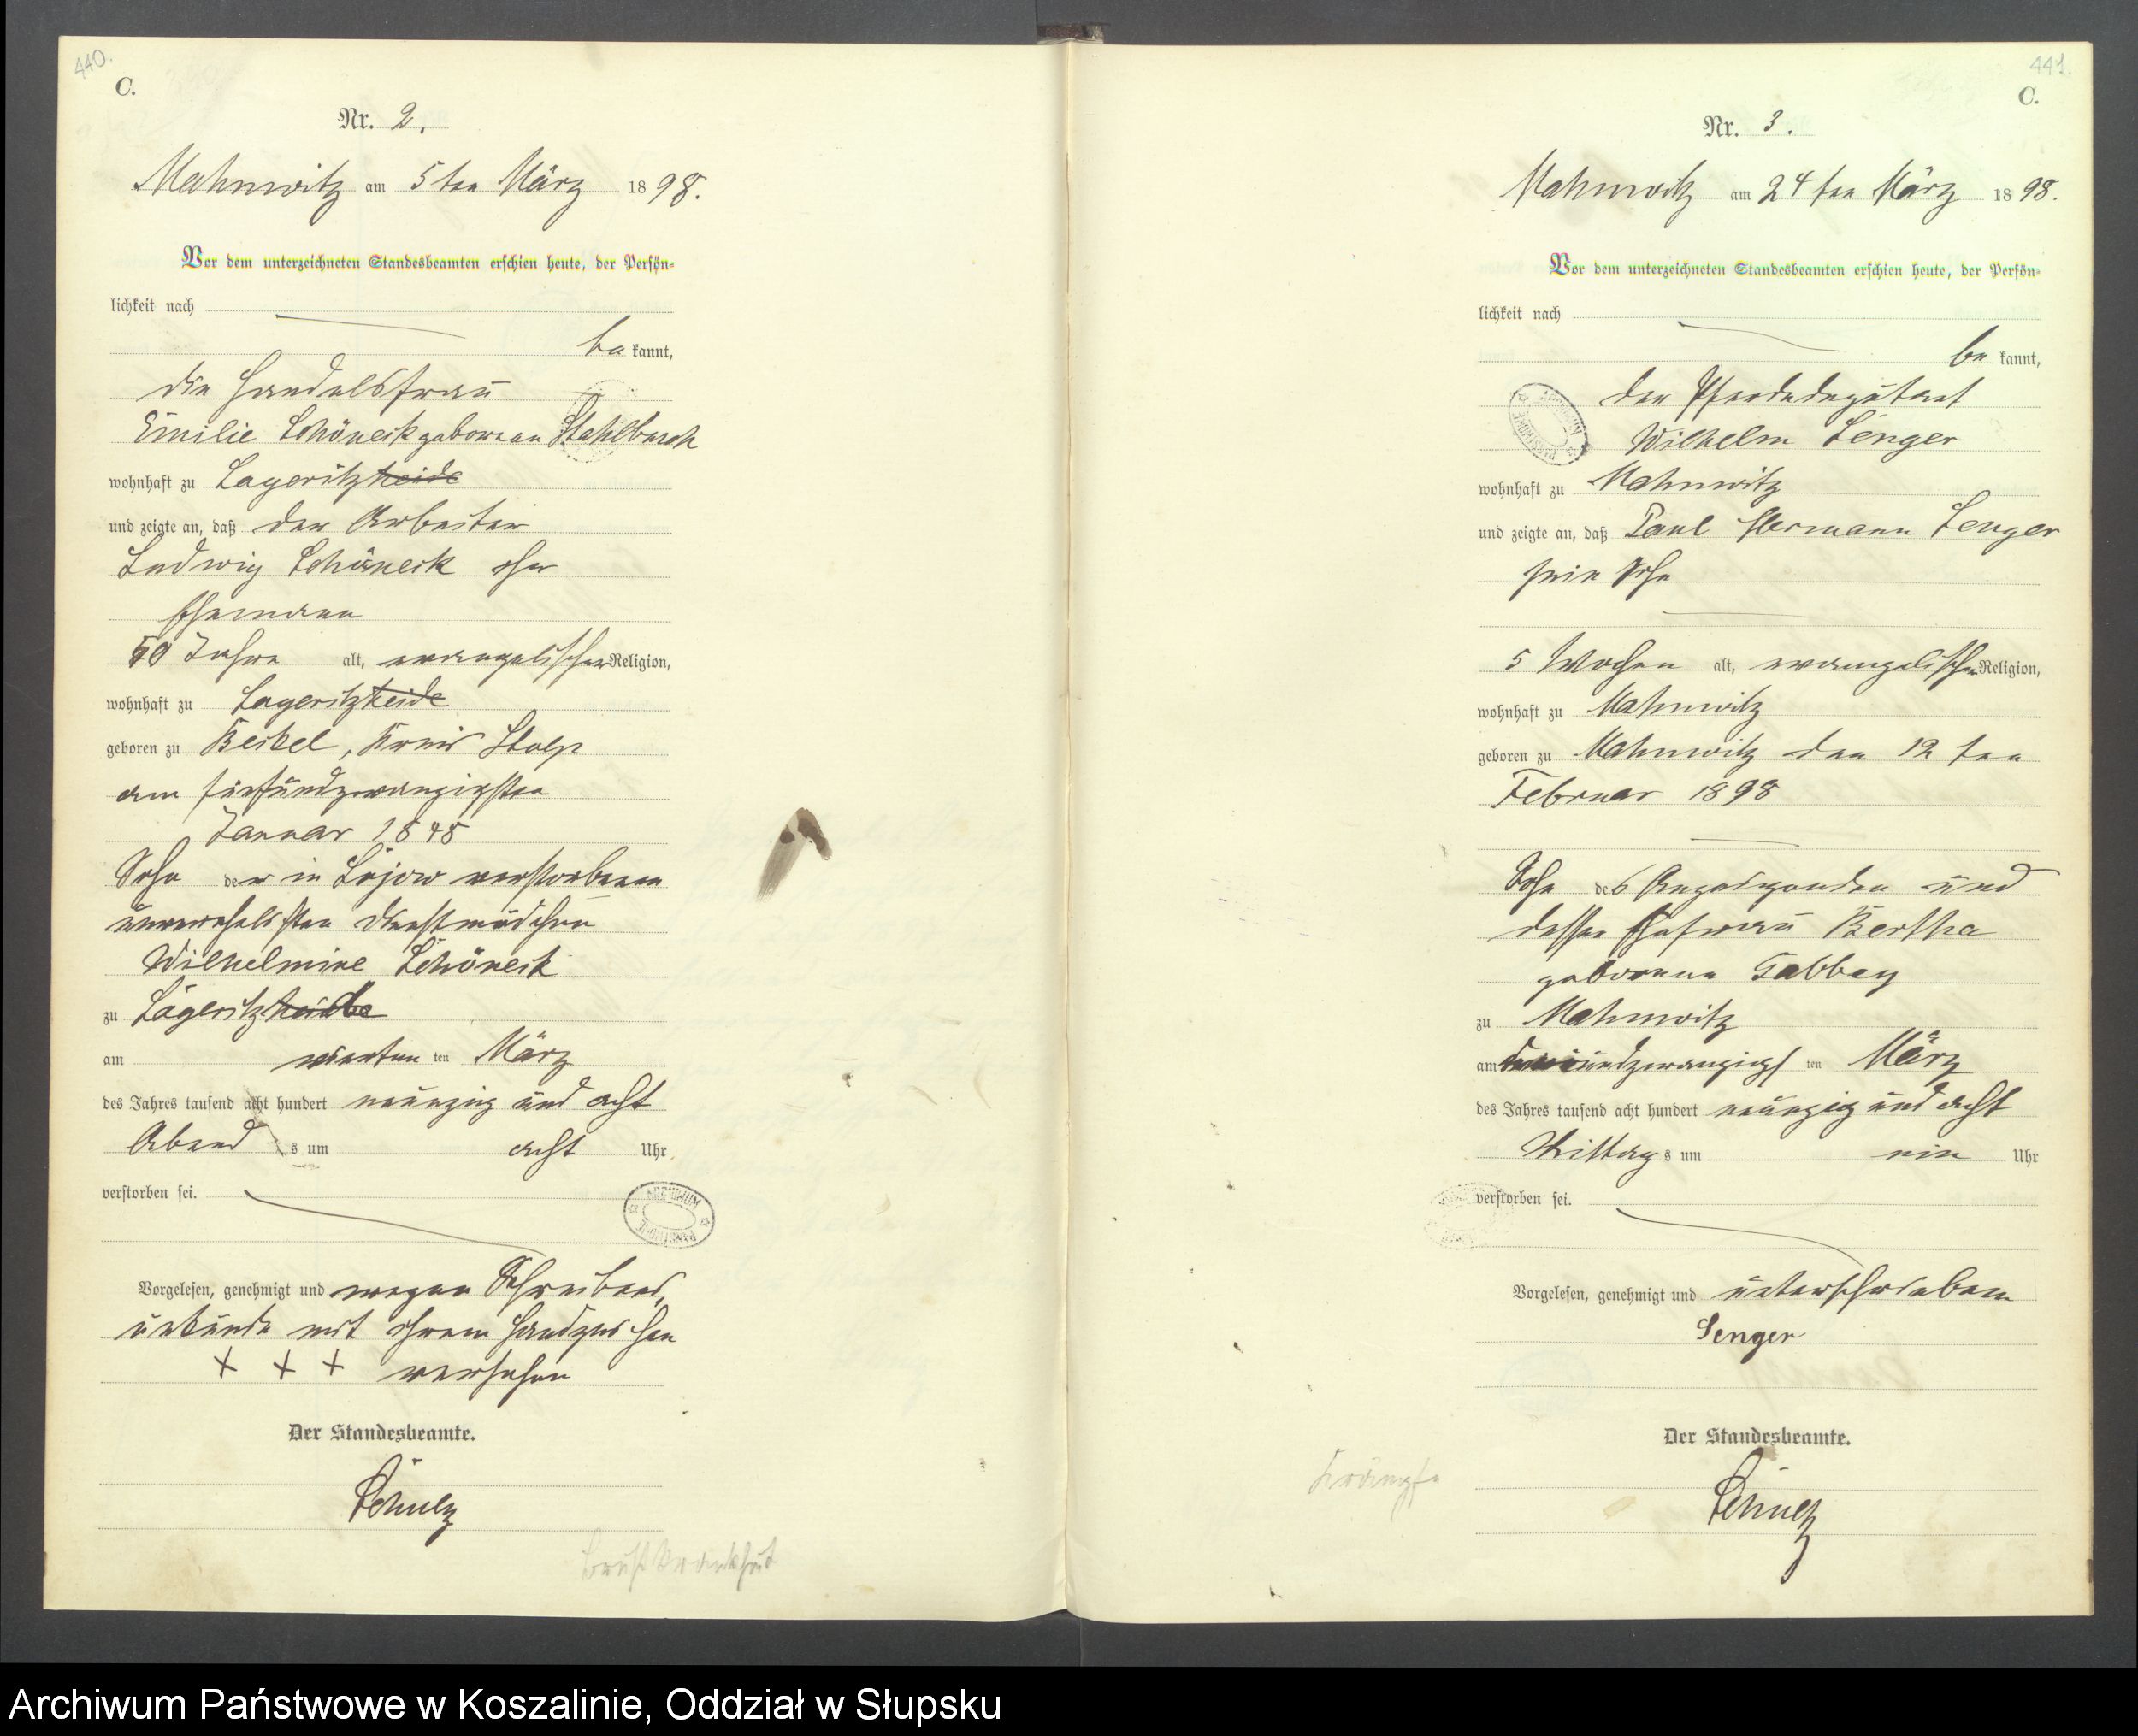 440.
C.
Nr. 2.
Mahnwitz am 5 ten März 1898.
Vor dem unterzeichneten Standesbeamten erschien heute, der Persön-
lichkeit nach
be kannt,
die Handelsfrau
Emilie Schöneck geborene Stahlbusch
wohnhaft zu Lageritzheide
und zeigte an, daß der Arbeiter
Ludwig Schöneck ihr
Ehemann
50 Jahre alt, evangelischer Religion,
wohnhaft zu Lageritzheide
geboren zu Beckel, Kreis Stolp
am fünfundzwanzigsten
Januar 1848
Sohn der in Lojow verstorbenen
unverehelichten Dienstmädchen
Wilhelmine Schöneck
zu Lageritzheide
am vierten ten März
des Jahres tausend acht hundert neunzig und acht
Abend s um acht Uhr
verstorben sei.
Vorgelesen, genehmigt und wegen Schreibens
unkunde mit ihrem Handzeichen
+ + + versehen
Der Standesbeamte.
Schulz
Brustkrankheit
441.
C.
Nr. 3.
Mahnwitz am 24 ten März 1898.
Vor dem unterzeichneten Standesbeamten erschien heute, der Persön-
lichkeit nach
be kannt,
der Pferdedeputant
Wilhelm Senger
wohnhaft zu Mahnwitz
und zeigte an, daß Paul Hermann Senger
sein Sohn
5 Wochen alt, evangelischer Religion,
wohnhaft zu Mahnwitz
geboren zu Mahnwitz den 12 ten
Februar 1898
Sohn des Anzeigenden und
dessen Ehefrau Bertha
geborene Tabbey
zu Mahnwitz
am dreiundzwanzigs ten März
des Jahres tausend acht hundert neunzig und acht
Mittag s um ein Uhr
verstorben sei.
Vorgelesen, genehmigt und unterschrieben
Senger
Der Standesbeamte.
Schulz
Krämpfe
Archiwum Państwowe w Koszalinie, Oddział w Słupsku